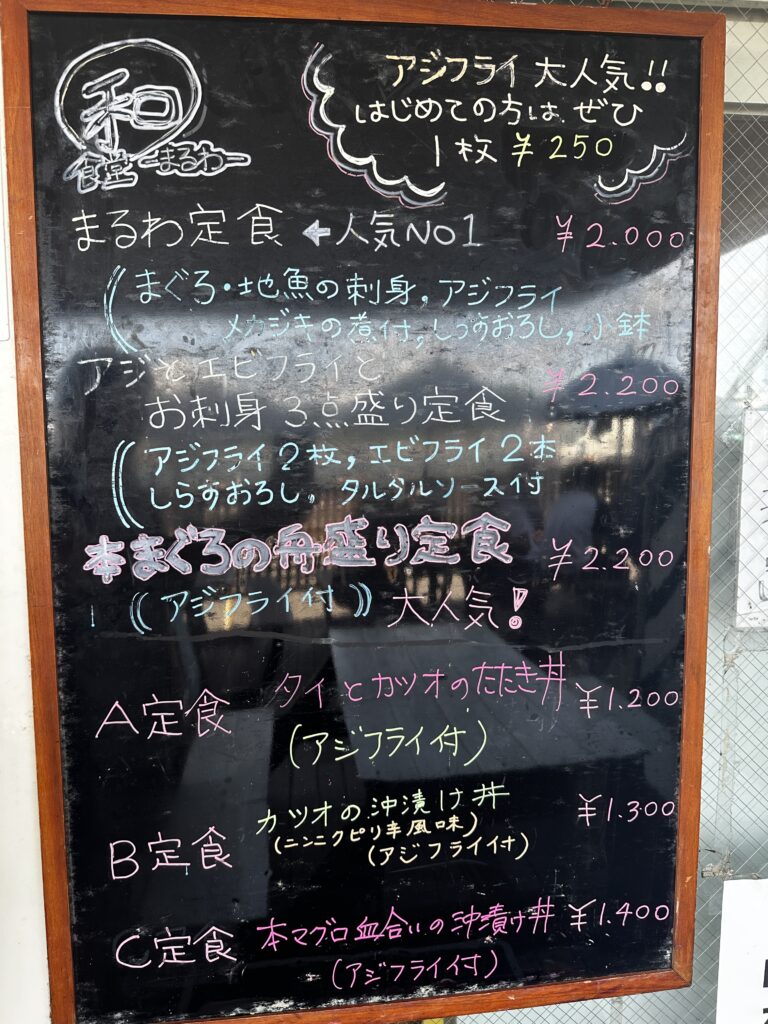 和
食堂 -まるわ-
アジフライ 大人気!!
はじめての方は ぜひ
1枚 ¥250
まるわ定食 ←人気NO1 ¥2.000
(まぐろ・地魚の刺身, アジフライ
メカジキの煮付, しらすおろし, 小鉢
アジとエビフライと ¥2.200
お刺身 3点盛り定食
(アジフライ2枚, エビフライ2本
しらすおろし, タルタルソース付
本まぐろの舟盛り定食 ¥2.200
((アジフライ付)) 大人気!
A定食 タイとカツオのたたき丼 ¥1.200
(アジフライ付)
B定食 カツオの沖漬け丼 ¥1.300
(ニンニクピリ辛風味)
(アジフライ付)
C定食 本マグロ血合いの沖漬け丼 ¥1.400
(アジフライ付)